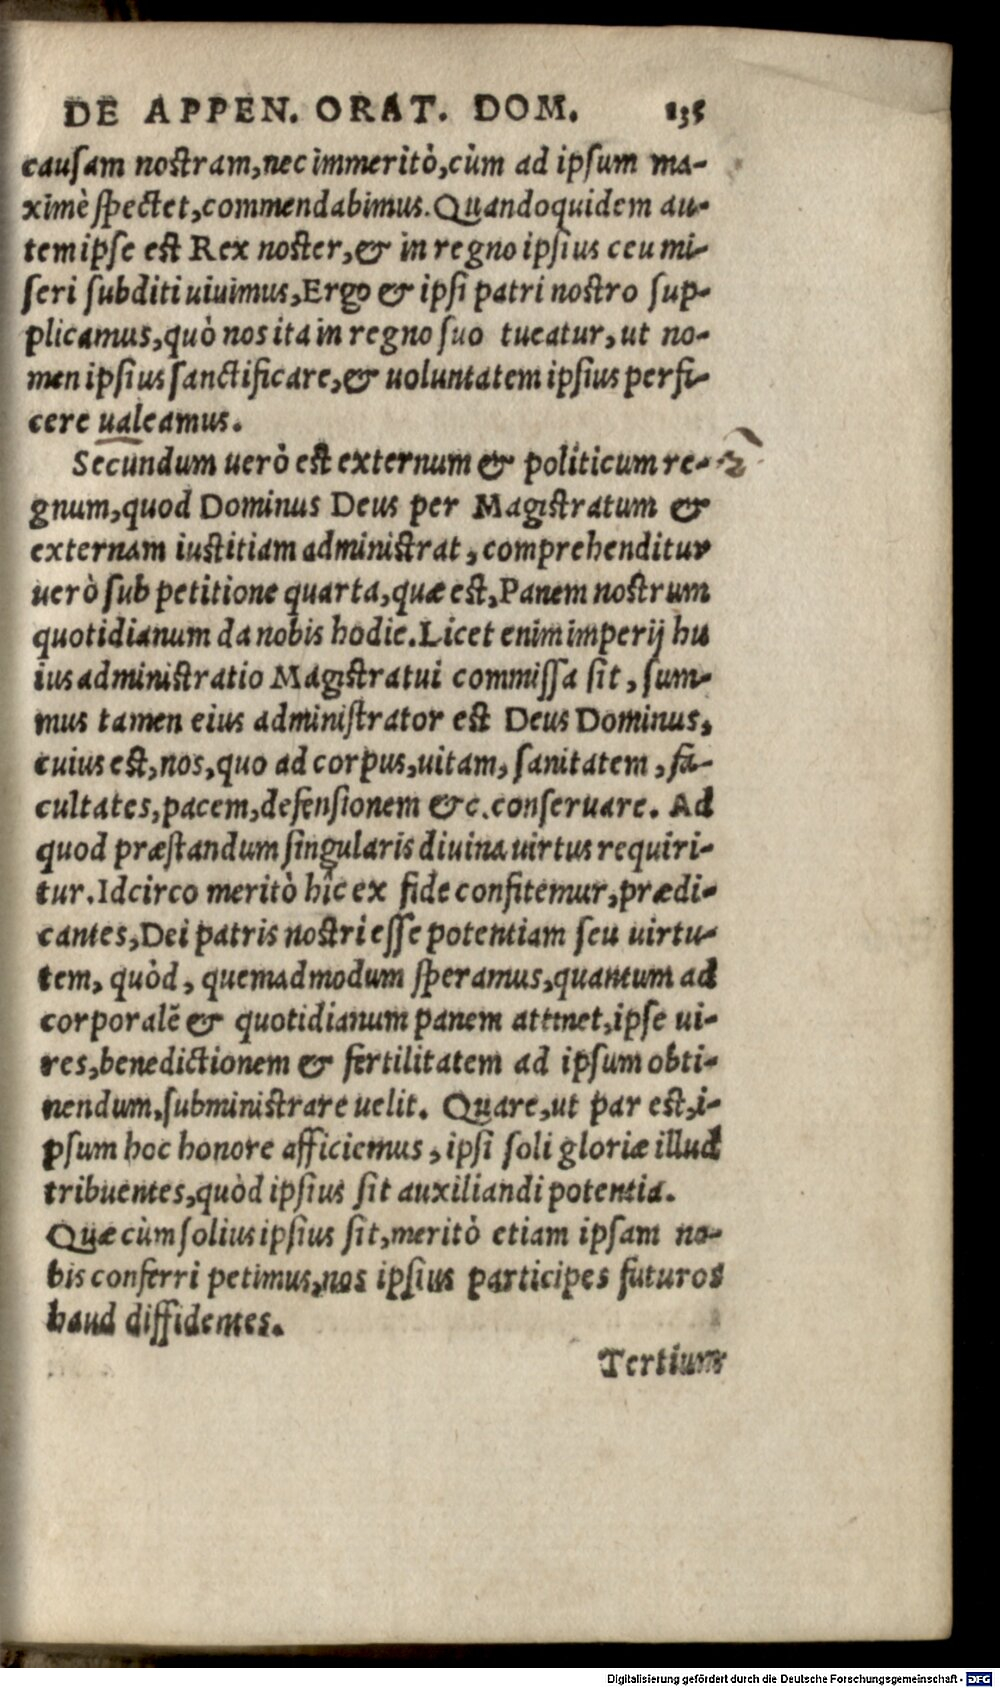 DE APPEN. ORAT. DOM. 135
causam nostram, nec immeritò, cùm ad ipsum ma-
ximè spectet, commendabimus. Quandoquidem au-
tem ipse est Rex noster, & in regno ipsius ceu mi-
seri subditi uiuimus, Ergo & ipsi patri nostro sup-
plicamus, quò nos ita in regno suo tueatur, ut no-
men ipsius sanctificare, & uoluntatem ipsius perfi-
cere ualeamus.
Secundum uerò est externum & politicum re- 2
gnum, quod Dominus Deus per Magistratum &
externam iustitiam administrat, comprehenditur
uerò sub petitione quarta, quæ est, Panem nostrum
quotidianum da nobis hodie. Licet enim imperij hu
ius administratio Magistratui commissa sit, sum-
mus tamen eius administrator est Deus Dominus,
cuius est, nos, quo ad corpus, uitam, sanitatem, fa-
cultates, pacem, defensionem &c. conseruare. Ad
quod præstandum singularis diuina uirtus requiri-
tur. Idcirco meritò hîc ex fide confitemur, prædi-
cantes, Dei patris nostri esse potentiam seu uirtu-
tem, quòd, quemadmodum speramus, quantum ad
corporalē & quotidianum panem attinet, ipse ui-
res, benedictionem & fertilitatem ad ipsum obti-
nendum, subministrare uelit. Quare, ut par est, i-
psum hoc honore afficiemus, ipsi soli gloriæ illud
tribuentes, quòd ipsius sit auxiliandi potentia.
Quæ cùm solius ipsius sit, meritò etiam ipsam no-
bis conferri petimus, nos ipsius participes futuros
haud diffidentes.
Tertium
Digitalisierung gefördert durch die Deutsche Forschungsgemeinschaft - DFG